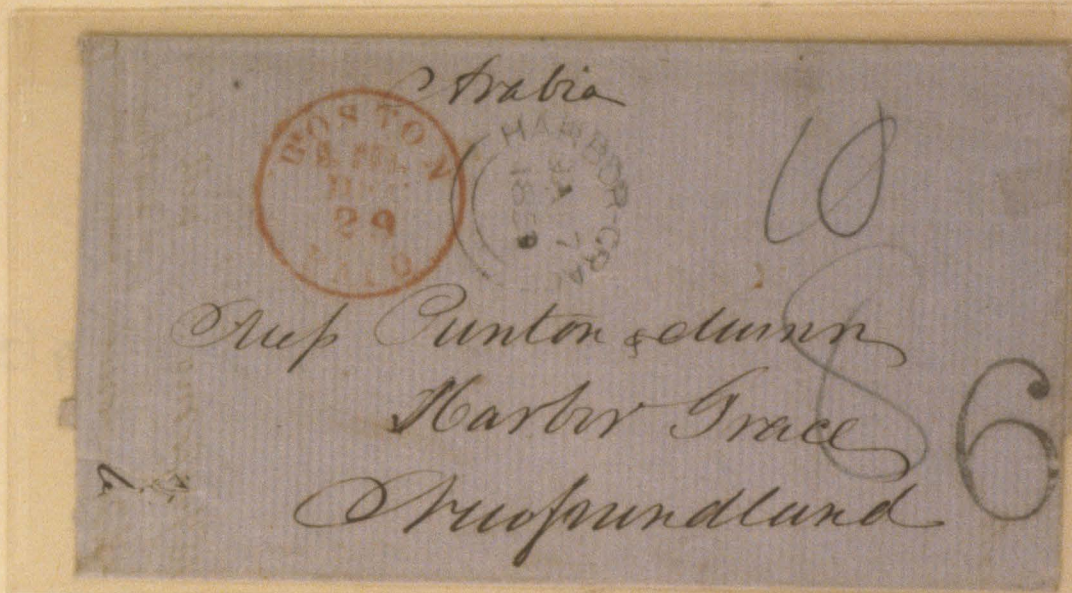 Arabia
BOSTON
29
PAID
HARBOR-GRA
JA 7
1859
10
8
6
Messrs Punton & Munn
Harbor Grace
Newfoundland